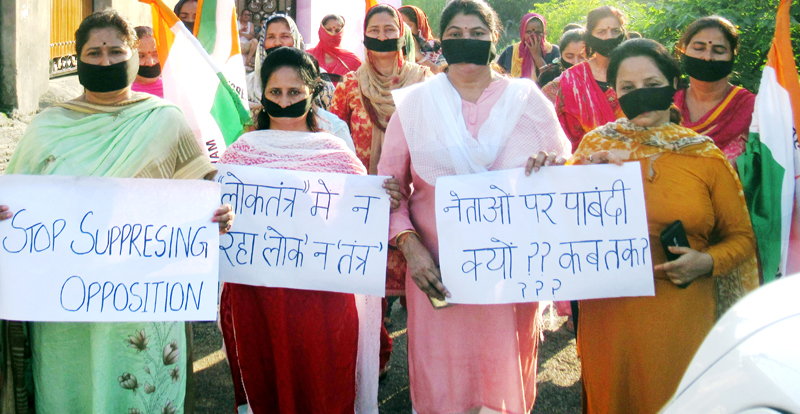 STOP SUPPRESING
OPPOSITION
"लोकतंत्र" मे न
रहा 'लोक' न 'तंत्र'
नेताओ पर पाबंदी
क्यों ?? कबतक?
???